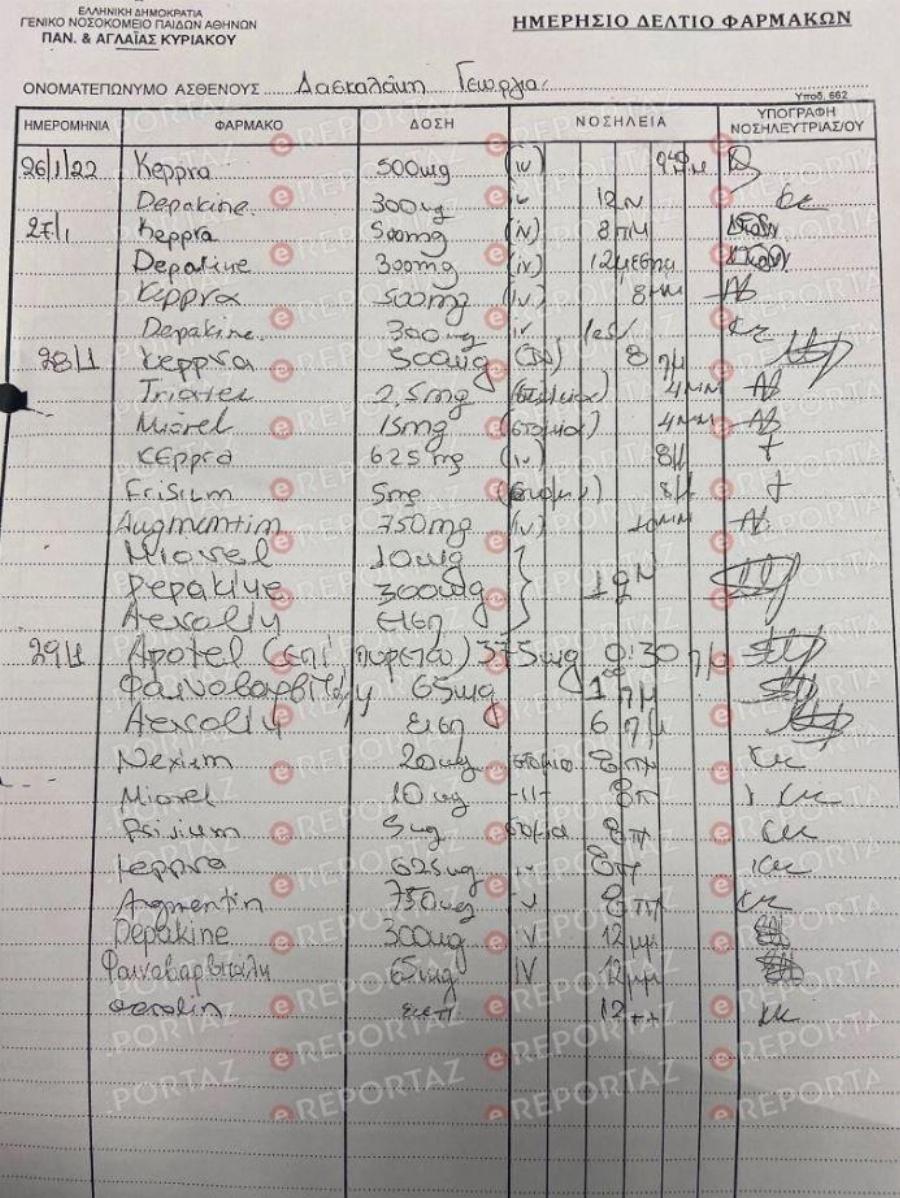 ΕΛΛΗΝΙΚΗ ΔΗΜΟΚΡΑΤΙΑ
ΓΕΝΙΚΟ ΝΟΣΟΚΟΜΕΙΟ ΠΑΙΔΩΝ ΑΘΗΝΩΝ
ΠΑΝ. & ΑΓΛΑΪΑΣ ΚΥΡΙΑΚΟΥ
ΗΜΕΡΗΣΙΟ ΔΕΛΤΙΟ ΦΑΡΜΑΚΩΝ
ΟΝΟΜΑΤΕΠΩΝΥΜΟ ΑΣΘΕΝΟΥΣ Δασκαλάκη Γεωργία
Υποδ. 662
ΗΜΕΡΟΜΗΝΙΑ ΦΑΡΜΑΚΟ ΔΟΣΗ ΝΟΣΗΛΕΙΑ ΥΠΟΓΡΑΦΗ ΝΟΣΗΛΕΥΤΡΙΑΣ/ΟΥ
26/1/22 Keppra 500mg (iv)
Depakine 300mg iv 12 Ν
27/1 Keppra 500mg (iv) 8 πμ
Depakine 300mg (iv) 12 μεσημ
Keppra 500mg (iv) 8 μμ
Depakine 300mg iv
28/1 Keppra 500mg 8 πμ
Triatec 2,5mg 4 μμ
Miorel 15mg (στομια) 4 μμ
Keppra 625mg (iv) 8
Frisium 5mg 8
Augmentin 750mg (iv)
Miorel 10mg
Depakine 300mg 12 Ν
Aerolin εισπ
29/1 Apotel (επί πυρετού) 375mg 0:30 πμ
Φαινοβαρβιτάλη 65mg 1⁰⁰ πμ
Aerolin εισπ 6 πμ
Nexium 20mg στομα 8 πμ
Miorel 10mg -//- 8π
Frisium 5mg στομα 8 πμ
Keppra 625mg iv 8πμ
Augmentin 750mg iv 8 πμ
Depakine 300mg IV 12 μμ
Φαινοβαρβιτάλη 65mg IV 12 μμ
aerolin εισπ 12
eREPORTAZ